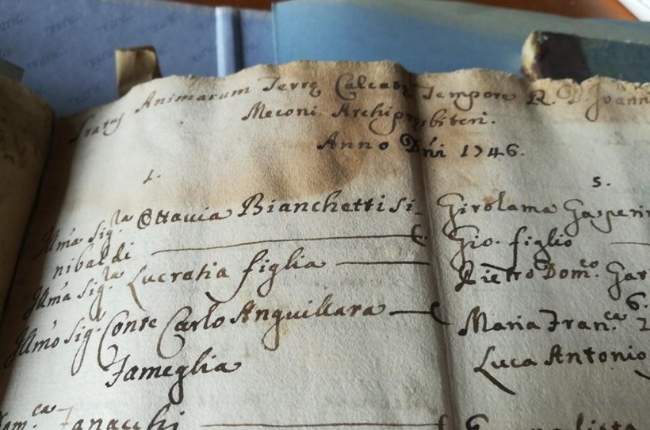 Status Animarum Terrę Calcatę Tempore R. D. Joann
Meconi Archipresbiteri.
Anno Dñi 1746.
1.
Illma Sig.ra Ottavia Bianchetti Si-
nibaldi
Illma Sig.ra Lucratia figlia
Illmo Sig.r Conte Carlo Anguillara
Fameglia
Dom.ca Fanacchi
5.
Girolama Gasperin
Gio. figlio
Pietro Dom.co Gar
6.
Maria Fran.ca
Luca Antonio